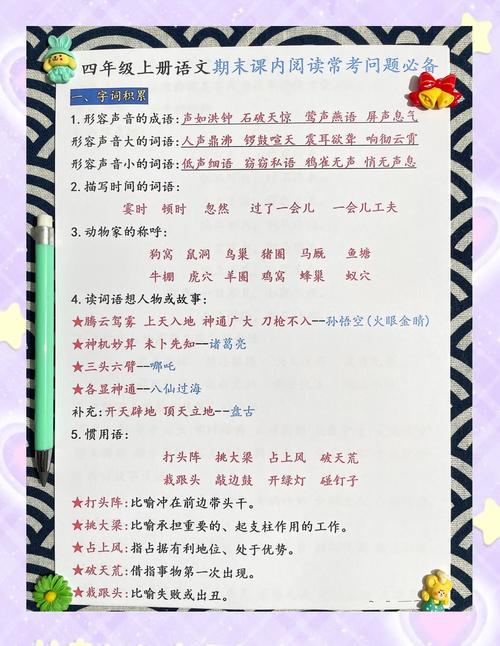 四年级上册语文期末课内阅读常考问题必备
一、字词积累
1.形容声音的成语:声如洪钟 石破天惊 莺声燕语 屏声息气
形容声音大的词语:人声鼎沸 锣鼓喧天 震耳欲聋 响彻云霄
形容声音小的词语:低声细语 窃窃私语 鸦雀无声 悄无声息
2.描写时间的词语:
霎时 顿时 忽然 过了一会儿 一会儿工夫
3.动物家的称呼:
狗窝 鼠洞 鸟巢 猪圈 马厩 鱼塘
牛棚 虎穴 羊圈 鸡窝 蜂巢 蚁穴
4.读词语想人物或故事:
★腾云驾雾 上天入地 神通广大 刀枪不入--孙悟空(火眼金睛)
★神机妙算 未卜先知--诸葛亮
★三头六臂--哪吒
★各显神通--八仙过海
补充:开天辟地 顶天立地--盘古
5.惯用语:
打头阵 挑大梁 占上风 破天荒
栽跟头 敲边鼓 开绿灯 碰钉子
★打头阵:比喻冲在前边带头干。
★挑大梁:比喻承担重要的、起支柱作用的工作。
★占上风:指占据有利地位、处于优势。
★破天荒:借指事物第一次出现。
★栽跟头:比喻失败或出丑。